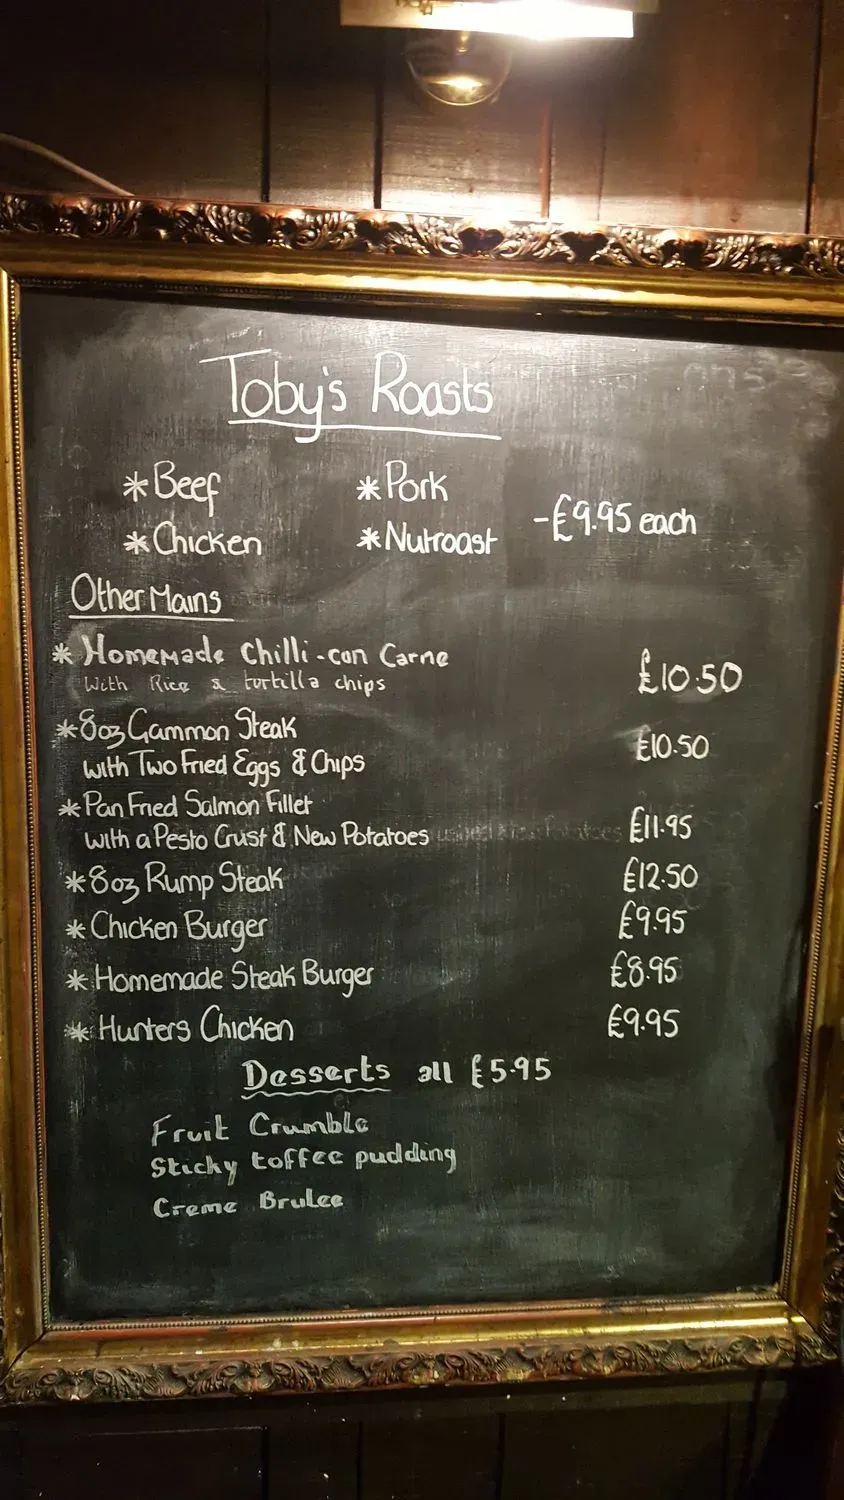 Toby's Roasts
* Beef * Pork
* Chicken * Nutroast -£9.95 each
Other Mains
* Homemade Chilli-con Carne £10.50
With Rice & tortilla chips
* 8oz Gammon Steak £10.50
with Two Fried Eggs & Chips
* Pan Fried Salmon Fillet
with a Pesto Crust & New Potatoes £11.95
* 8oz Rump Steak £12.50
* Chicken Burger £9.95
* Homemade Steak Burger £8.95
* Hunters Chicken £9.95
Desserts all £5.95
Fruit Crumble
Sticky toffee pudding
Creme Brulee